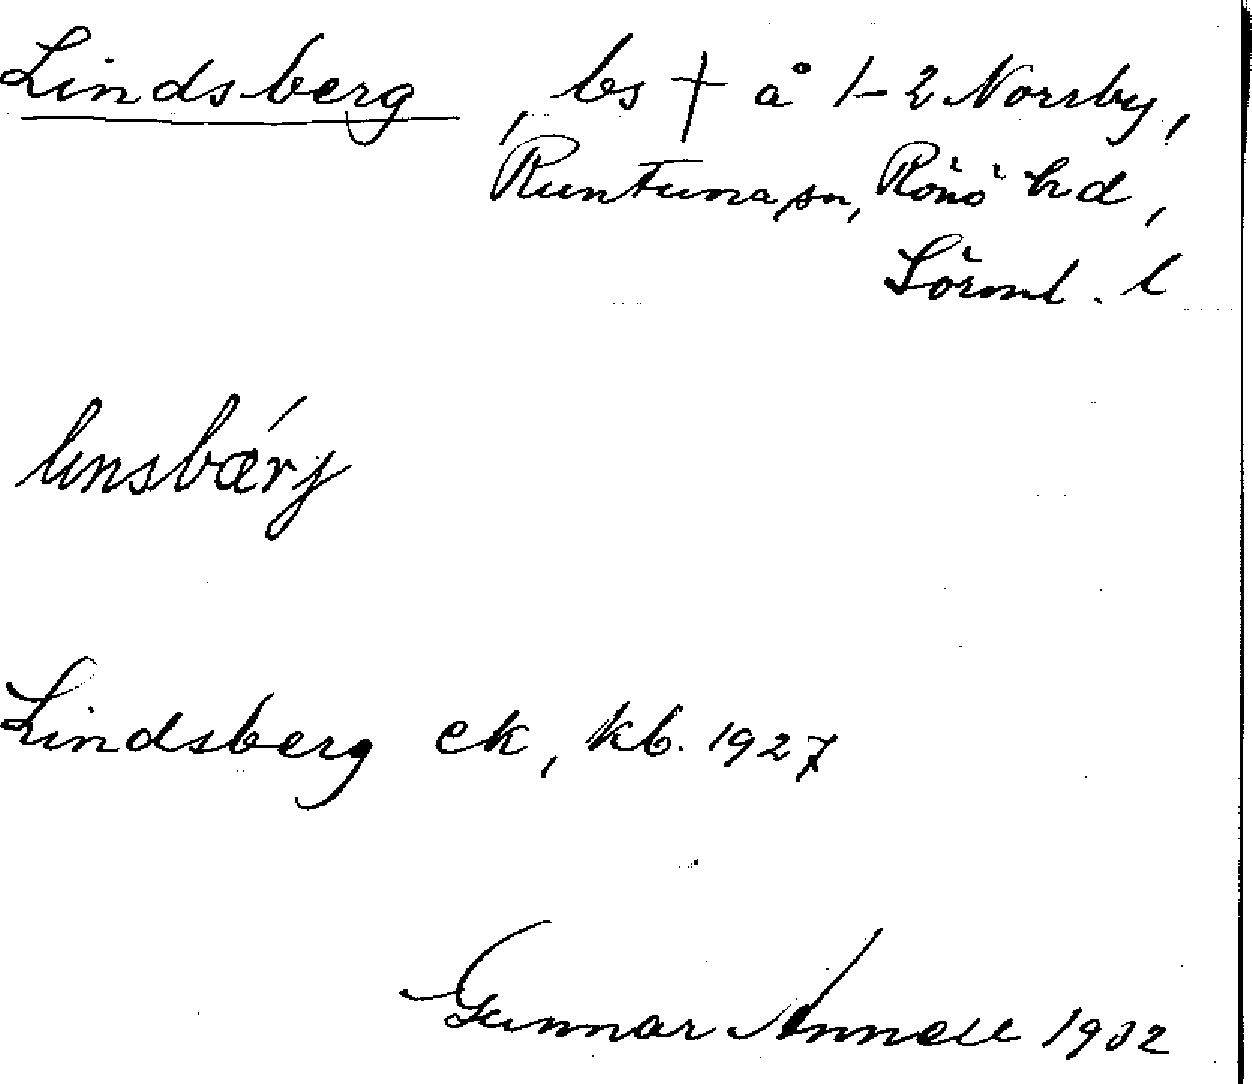 Lindsberg, bs † å 1-2 Norrby,
Runtuna sn, Rönö hd,
Sörml. l
linsbærj
Lindsberg ek, kb. 1927
Gunnar Annell 1932